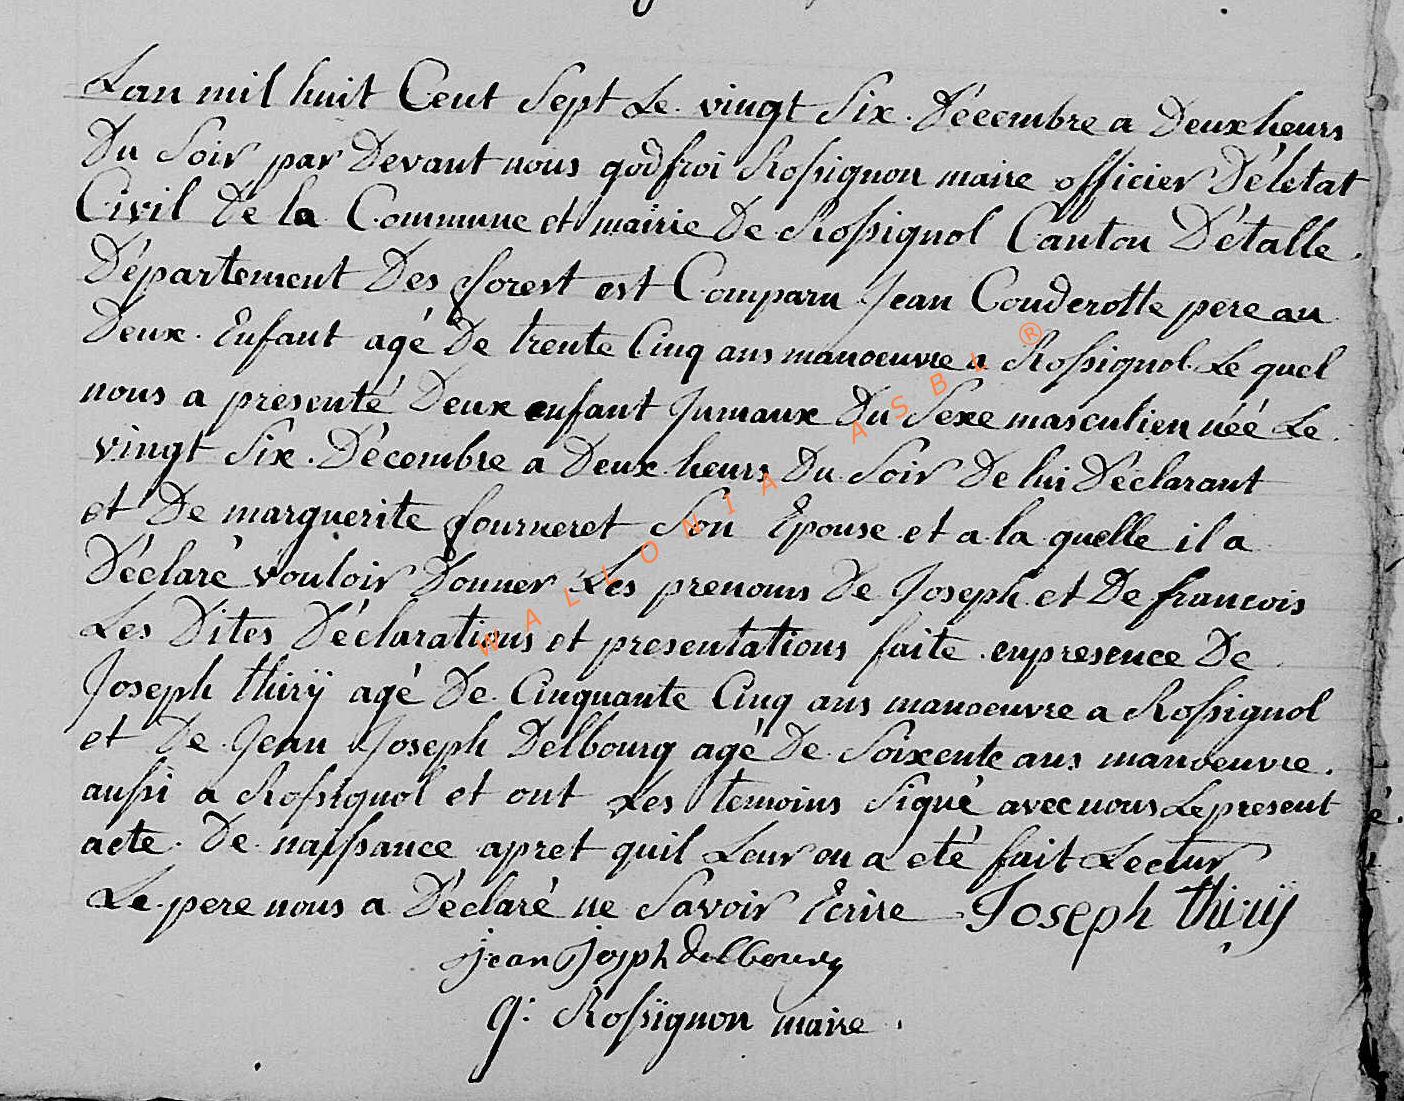 Lan mil huit Cent Sept Le vingt Six Décembre a Deux heurs
Du Soir par Devant nous godfroi Rossignon maire officier Déletat
Civil De la Commune et mairie De Rossignol Canton Détalle
Département Des forest est Comparu Jean Couderotte pere au
Deux Enfant agé De trente Cinq ans manoeuvre a Rossignol Le quel
nous a présenté Deux enfant Jumaux Du Sexe masculien néé Le
vingt Six Décembre a Deux heurs Du Soir De lui Déclarant
et De marguerite fourneret Son Epouse et a la quelle il a
Déclaré vouloir Donner Les prenoms De Joseph et De francois
Les Dites Déclarations et presentations faite enpresence De
Joseph thirÿ agé De Cinquante Cinq ans manoeuvre a Rossignol
et De Jean Joseph Delbourg agé De Soixente ans manoeuvre
aussi a Rossignol et ont Les temoins Signé avec nous Le present
acte De naissance apret quil Leur ou a eté fait Lectur
Le pere nous a Déclaré ne Savoir Ecrire Joseph thirÿ
jean Josph delbourg
g: Rossignon maire
WALLONIA ASBL ®